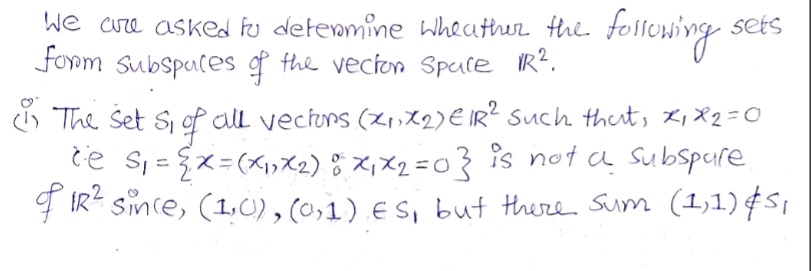 We are asked to determine wheather the following sets
form subspaces of the vector space ℝ².
(i) The set S₁ of all vectors (x₁,x₂) ∈ ℝ² such that, x₁x₂=0
i.e S₁ = {x=(x₁,x₂) : x₁x₂=0} is not a subspace
of ℝ² since, (1,0), (0,1) ∈ S₁ but there sum (1,1) ∉ S₁